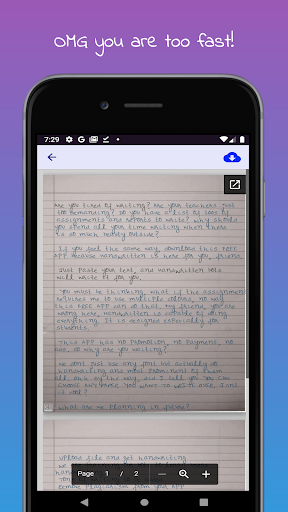 OMG you are too fast!
7:29
Are you tired of writing? Are your teachers just
too demanding? Do you have a list of 100s of
assignments and reports to write? Why should
you spend all your time writing when there
is so much beauty outside?
If you feel the same way, download this FREE
APP because handwritten is here for you, friend.
Just paste your text, and handwritten
will write it for you.
You must be thinking, what if the assignment
requires me to use multiple colours, no way
this FREE APP can do that. My friend, you are
wrong here, handwritten is capable of doing
everything. It is designed especially for
students.
This APP has no promotion, no payment, no
so why are you waiting?
We don't just use any font we actually
handwriting and most prominent of them
all. Ahh by the way, did I tell you you can
choose
What are we planning in future?
Upload file and get handwriting
we
Page 1 / 2
Remove plagiarism from your APP